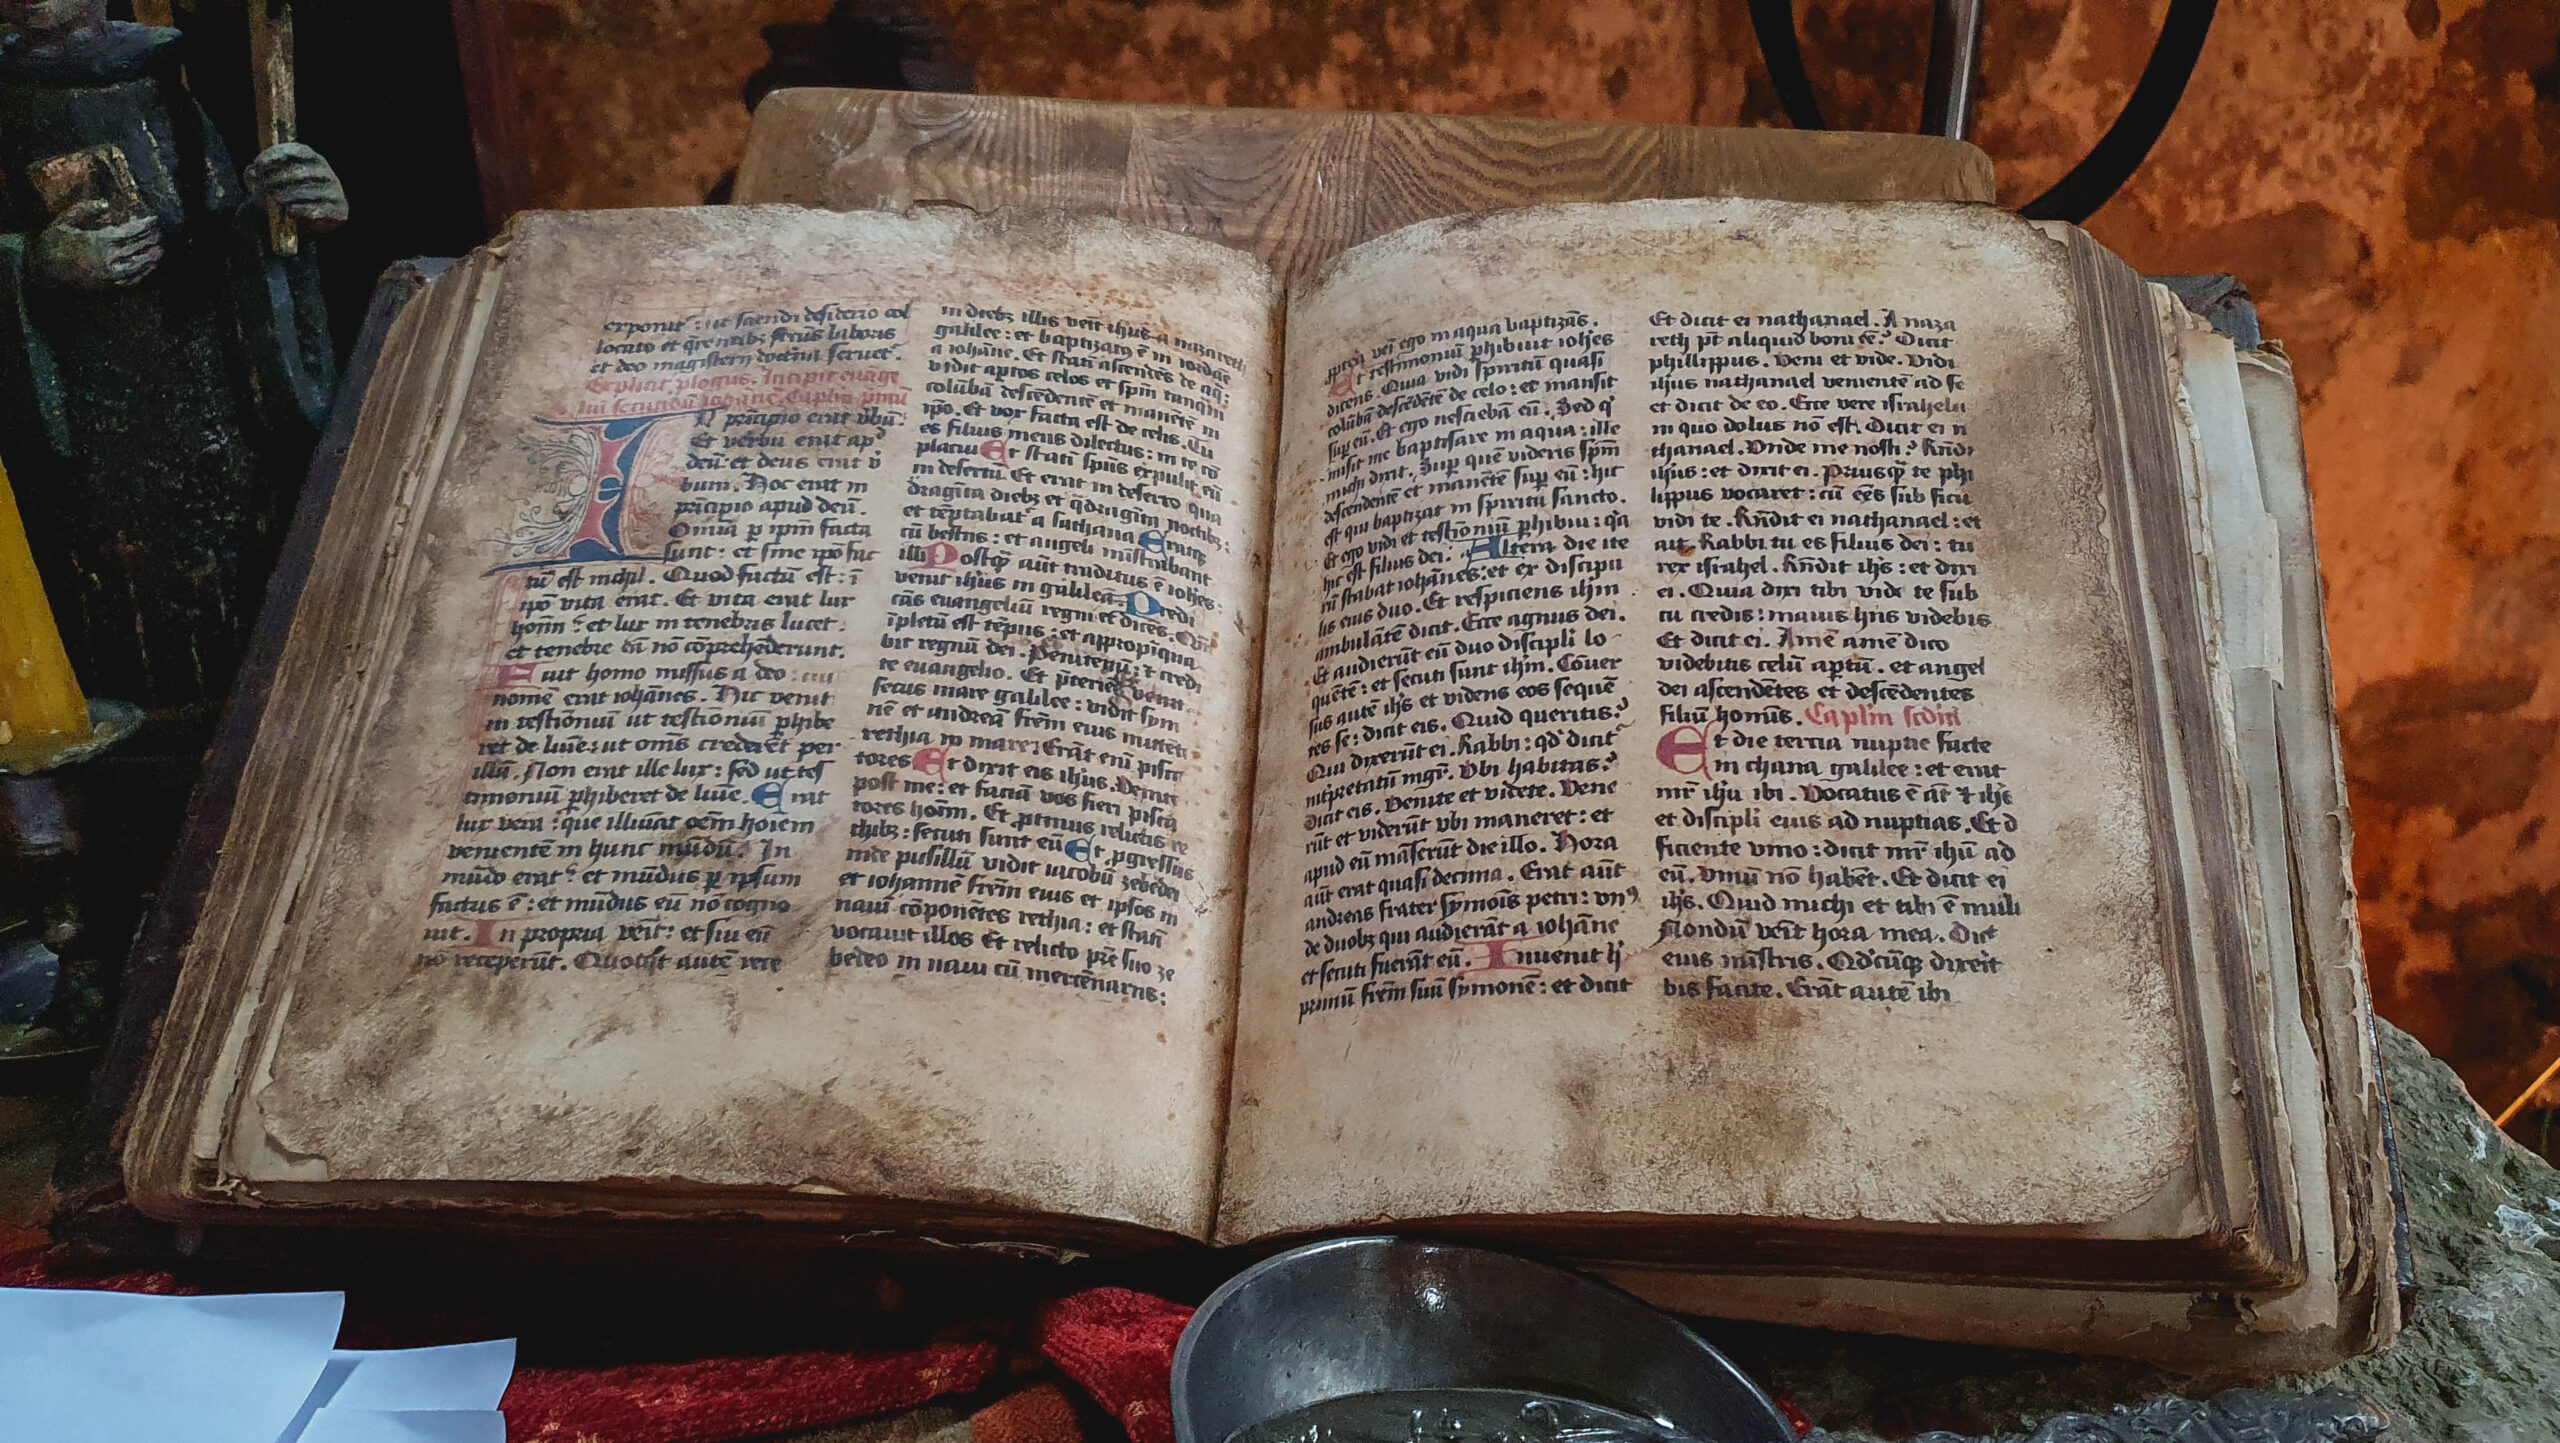 exponit᷑: ut sciendi desiderio col
locato et q̄rentibꝫ fructus laboris
et deo magisterii doctrina seruet᷑.
Explicit ꝓlogus. Incipit euāge
liū secundū iohānē. Caplm pͥmū
In pͥncipio erat v̄bū:
Et verbū erat apᵈ
deū: et deus erat v̄
bum. Hoc erat in
pͥncipio apud deū.
Omīa ꝑ ipm̄ facta
sunt: et sine ipō fac
tū est nichil. Quod factū est: ī
ipō vita erat. Et vita erat lux
hoīm: et lux in tenebris lucet:
et tenebre eā nō cōprehēderunt.
Fuit homo missus a deo: cui
nomē erat iohānes. Hic venit
in testīoniū ut testīoniū ꝑhibe
ret de luīe: ut oms̄ crederēt per
illū. Non erat ille lux: sed ut tes
timoniū ꝑhiberet de luīe. Erat
lux vera: que illuīat oēm hoīem
venientē in hunc mūdū. In
mūdo erat: et mūdus ꝑ ipsum
factus ē: et mūdus eū nō cogno
uit. In propria venīt: et sui eū
nō receperūt. Quotqt autē rece
in diebꝫ illis venīt ihus a nazareth
galilee: et baptizatꝰ ē in iordāe
a iohāne. Et statī ascendēs de aq̄:
vidit aꝑtos celos et spm̄ tanqm̄
colūbā descēdentē et manētē in
ipō. Et vox facta est de celis. Tu
es filius meus dilectus: in te cō
placui Et statī spūs expulit eū
in desertū. Et erat in deserto qua
dragīta diebꝫ et q̄dragīta noctibꝫ:
et tēptabat᷑ a sathana Eratqꝫ
cū bestiis: et angeli mīstrabant
illi Postqᷓ aūt traditus ē iohēs:
venit ihūs in galileā. Predi
cās euangeliū regni et dicēs. Qm̄
īpletū est tēpus: et appropīqua
bit regnū dei. Penitemī: et credi
te euangelio. Et p̄teriēs
secus mare galilee: vidit sym
nē et andreā frēm eius mittētes
rethia in mare: Erāt enī pisca
tores Et dixit eis ihūs. Venite
post me: et faciā vos fieri pisca
tores hoīm. Et ꝓtinus relictis re
thibꝫ: secuti sunt eū Et ꝓgressus
inde pusillū vidit iacobū zebedei
et iohannē frēm eius et ipsos in
naui cōponētes rethia: et statī
vocauit illos Et relicto pr̄e suo ze
bedeo in naui cū mercēnariis:
venī ego in aqua baptizās.
Et testimoniū ꝑhibuit iohēs
dicens. Quia vidi spiritū quasi
colūbā descēdētē de celo: et mansit
suꝑ eū. Et ego nesciebā eū. Sed qͥ
misit me baptisare in aqua: ille
michi dixit. Suꝑ quē videris spm̄
descendentē et manētē suꝑ eū: hic
est qui baptizat in spiritu sancto.
Et ego vidi et testīoniū ꝑhibui: qͥa
hic est filius dei. Altera die ite
rū stabat iohānes: et ex discipu
lis eius duo. Et respiciens ihm̄
ambulātē dicit. Ecce agnus dei.
Et audierūt eū duo discipli lo-
quētē: et secuti sunt ihm̄. Cōuer
sus autē ihs̄ et videns eos sequē
tes se: dicit eis. Quid queritis?
Qui dixerūt ei. Rabbi: qd' dicit᷑
int̄pretatū mgr̄. Vbi habitas?
Dicit eis. Venite et videte. Vene
rūt et viderūt vbi maneret: et
apud eū māserūt die illo. Hora
aūt erat quasi decima. Erat aūt
andreas frater symoīs petri: vnꝰ
de duobꝫ qui audierāt a iohāne
et secuti fuerāt eū. Inuenit hͥ
primū frēm suū symonē: et dicit
Et dicit ei nathanael. A naza
reth pt̄ aliquid boni eē? Dicit
phillippus. Veni et vide. Vidit
ihūs nathanael venientē ad se
et dicit de eo. Ecce vere israhelita
in quo dolus nō est. Dicit ei na
thanael. Vnde me nosti? Rn̄dit
ihūs: et dixit ei. Priusqᷓ te phi
lippus vocaret: cū eēs sub ficu
vidi te. Rn̄dit ei nathanael: et
ait. Rabbi tu es filius dei: tu
rex israhel. Rn̄dit ihs̄: et dixit
ei. Quia dixi tibi vidi te sub
cu credis: maius hiis videbis
Et dicit ei. Amē amē dico
videbitis celū aꝑtū. et angel
dei ascendētes et descēdentes
filiū homīs. Caplm scdm
Et die tercia nuptie facte
in chana galilee: et erat
mr̄ ihū ibi. Vocatus ē aūt et ihs̄
et discipli eius ad nuptias. Et d
ficiente vino: dicit mr̄ ihū ad
eū. Vinū nō habēt. Et dicit ei
ihs̄. Quid michi et tibi ē muli
Nondū venīt hora mea. Dicit
eius mīstris. Qd'cūqꝫ dixeit
bis facite. Erāt autē ibi